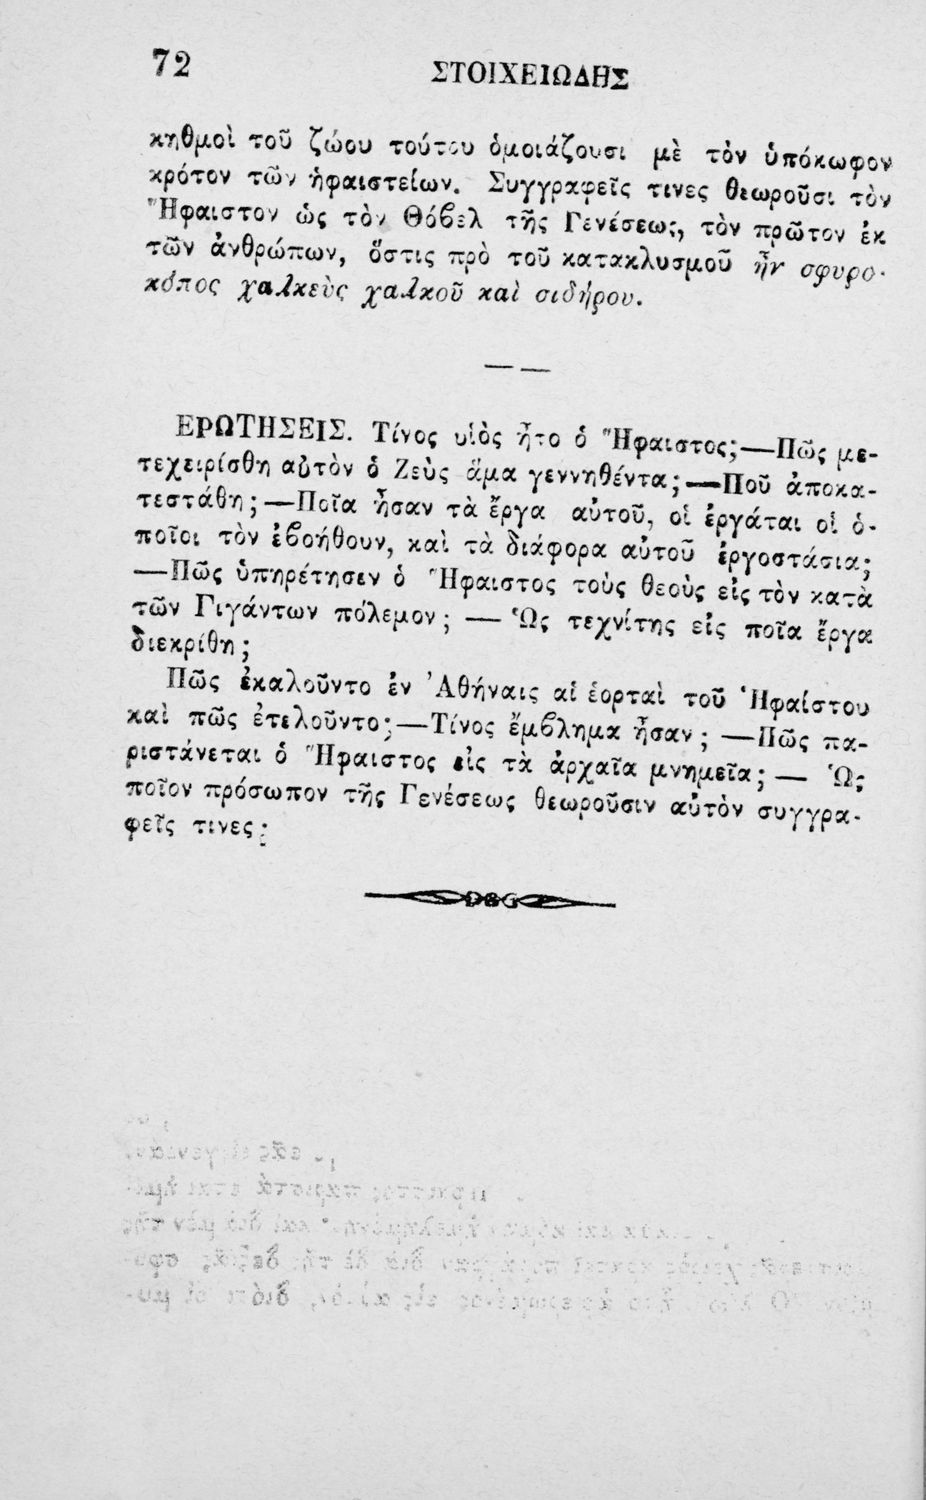 72
ΣΤΟΙΧΕΙΩΔΗΣ
κηθμοὶ τοῦ ζώου τούτου ὁμοιάζουσι μὲ τὸν ὑπόκωφον
κρότον τῶν ἡφαιστείων. Συγγραφεῖς τινες θεωροῦσι τὸν
Ἥφαιστον ὡς τὸν Θόβελ τῆς Γενέσεως, τὸν πρῶτον ἐκ
τῶν ἀνθρώπων, ὅστις πρὸ τοῦ κατακλυσμοῦ ἦν σφυρο-
κόπος χαλκεὺς χαλκοῦ καὶ σιδήρου.
ΕΡΩΤΗΣΕΙΣ. Τίνος υἱὸς ἦτο ὁ Ἥφαιστος;—Πῶς με-
τεχειρίσθη αὐτὸν ὁ Ζεὺς ἅμα γεννηθέντα;—Ποῦ ἀποκα-
τεστάθη;—Ποῖα ἦσαν τὰ ἔργα αὐτοῦ, οἱ ἐργάται οἱ ὁ-
ποῖοι τὸν ἐβοήθουν, καὶ τὰ διάφορα αὐτοῦ ἐργοστάσια;
—Πῶς ὑπηρέτησεν ὁ Ἥφαιστος τοὺς θεοὺς εἰς τὸν κατὰ
τῶν Γιγάντων πόλεμον; — Ὡς τεχνίτης εἰς ποῖα ἔργα
διεκρίθη;
Πῶς ἐκαλοῦντο ἐν Ἀθήναις αἱ ἑορταὶ τοῦ Ἡφαίστου
καὶ πῶς ἐτελοῦντο;—Τίνος ἔμβλημα ἦσαν; —Πῶς πα-
ριστάνεται ὁ Ἥφαιστος εἰς τὰ ἀρχαῖα μνημεῖα; — Ὡς
ποῖον πρόσωπον τῆς Γενέσεως θεωροῦσιν αὐτὸν συγγρα-
φεῖς τινες;